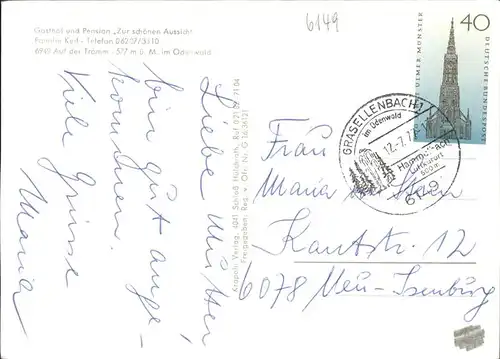 Gasthof und Pension „Zur schönen Aussicht"
Familie Karl - Telefon 06207/3310
6949 Auf der Tromm - 577 m ü. M. im Odenwald
6149
Liebe Mutter,
bin gut ange-
kommen.
Viele Grüsse
Maria
Krapohl-Verlag, 4041 Schloß Hülchrath, Ruf 02182
Freigegeben: Reg. v. Ofr. Nr. G
40
ULMER MÜNSTER
DEUTSCHE BUNDESPOST
GRASELLENBACH 1
im Odenwald
12.-7.7
Luftkurort
6149
Frau
Maria
Kantstr. 12
6078 Neu-Isenburg